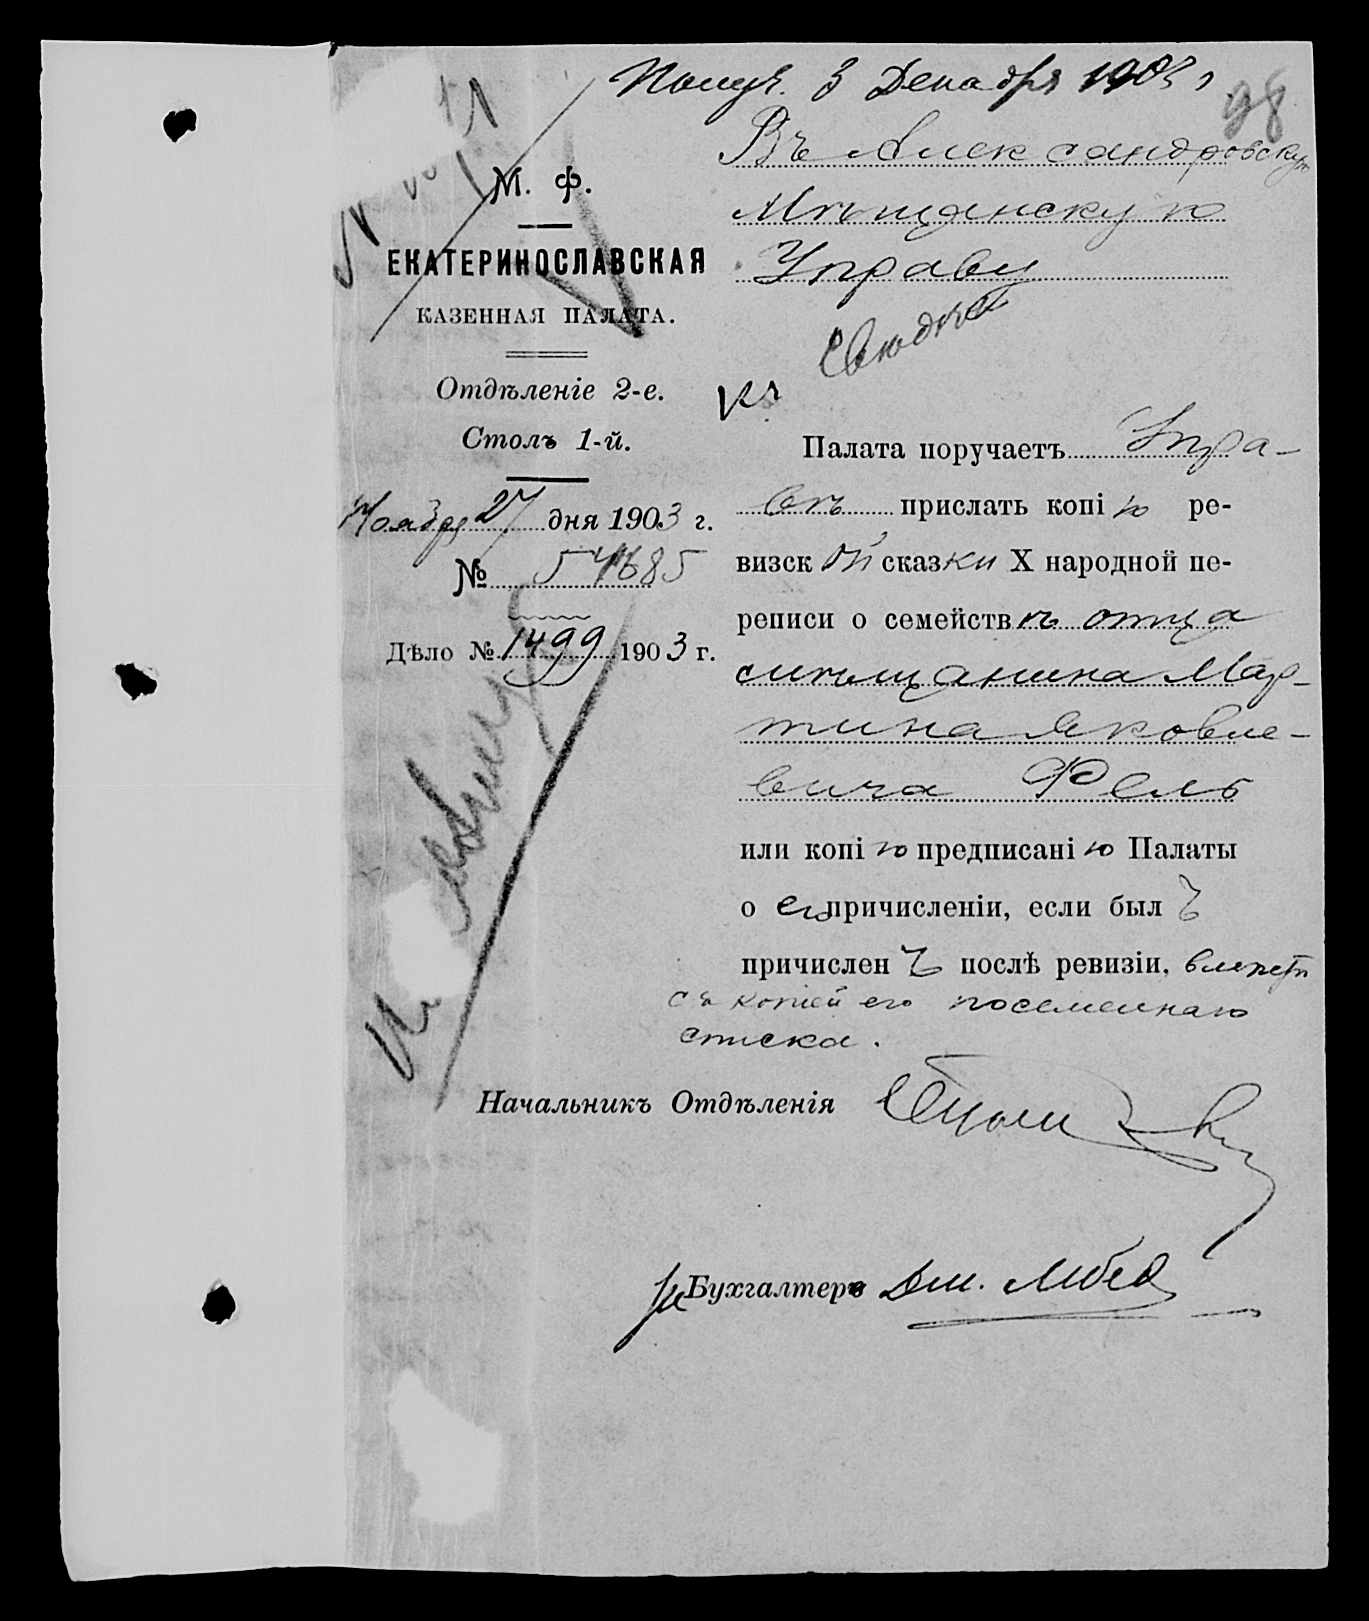 Получ. 3 Декабря 1903 г.
98
Въ Александровскую
Мѣщанскую
Управу
М. Ф.
ЕКАТЕРИНОСЛАВСКАЯ
КАЗЕННАЯ ПАЛАТА.
Отдѣленіе 2-е.
Столъ 1-й.
Ноября 27 дня 1903 г.
№ 54685
Дѣло № 1499 1903 г.
Палата поручаетъ Упра-
вѣ прислать копію ре-
визской сказки X народной пе-
реписи о семействѣ отца
мѣщанина Мар-
тина Яковле-
вича Фель
или копію предписанію Палаты
о его причисленіи, если былъ
причисленъ послѣ ревизіи, вмѣстѣ
съ копіей его посемейнаго
списка.
Начальникъ Отдѣленія
Бухгалтеръ